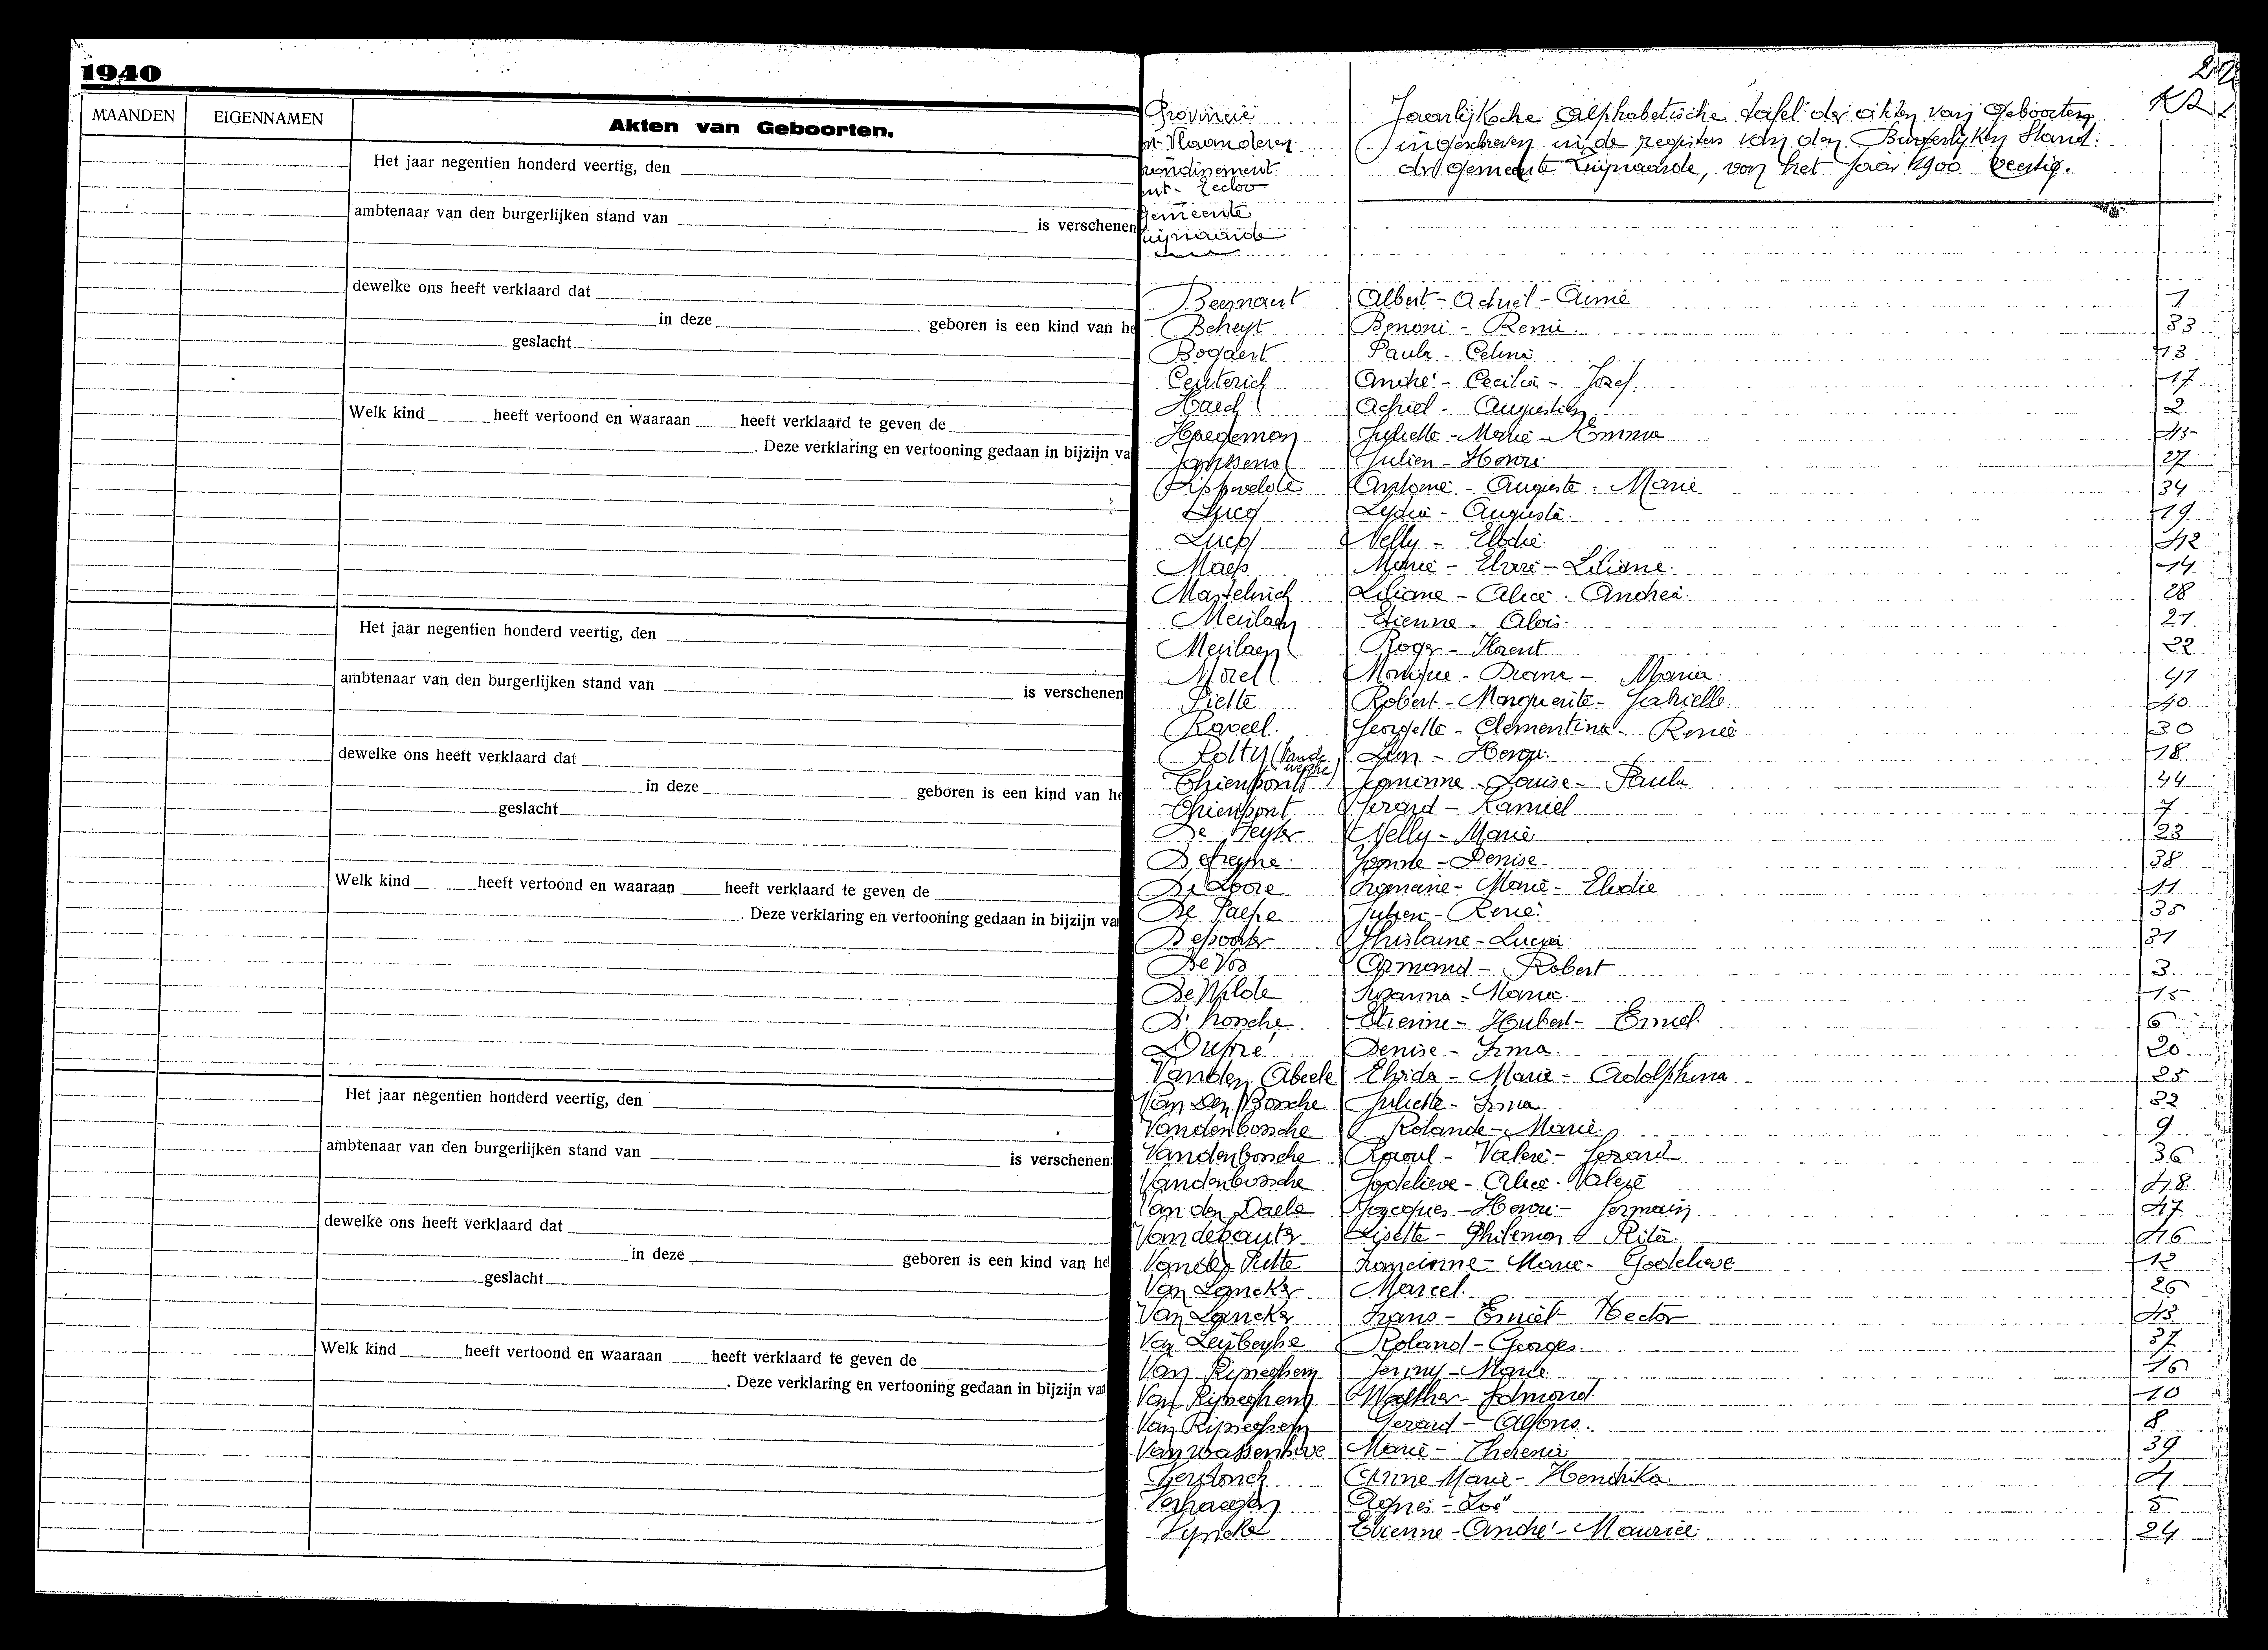 1940
MAANDEN EIGENNAMEN Akten van Geboorten.
Het jaar negentien honderd veertig, den
ambtenaar van den burgerlijken stand van is verschenen
dewelke ons heeft verklaard dat
in deze geboren is een kind van he
geslacht
Welk kind heeft vertoond en waaraan heeft verklaard te geven de
. Deze verklaring en vertooning gedaan in bijzijn va
Het jaar negentien honderd veertig, den
ambtenaar van den burgerlijken stand van is verschenen
dewelke ons heeft verklaard dat
in deze geboren is een kind van he
geslacht
Welk kind heeft vertoond en waaraan heeft verklaard te geven de
. Deze verklaring en vertooning gedaan in bijzijn va
Het jaar negentien honderd veertig, den
ambtenaar van den burgerlijken stand van is verschenen
dewelke ons heeft verklaard dat
in deze geboren is een kind van he
geslacht
Welk kind heeft vertoond en waaraan heeft verklaard te geven de
. Deze verklaring en vertooning gedaan in bijzijn va
Provincie
st-Vlaanderen
rondissement
nt-Eecloo
Gemeente
uijnaarde
Jaarlijksche Alphabetische tafel der akten van Geboorten
ingeschreven in de registers van den Burgerlijken Stand
der gemeente Zwijnaarde, van het jaar 1900 veertig.
Beernaert Albert - Achiel - Aimé 1
Beheyt Benoni - Remi 33
Bogaert Paula - Celina 13
André - Cecilia - Jozef 17
Achiel - Augustien 2
Haegeman Juliette - Marie - Emma 45
Janssens Julien - Henri 27
Lippevelde Antoine - Auguste - Marie 34
Augusta 19
Nelly - Elodie 42
Maes Marie - Elvire - Liliane 14
Martelinck Liliane - Alice - Andrea 28
Meulaen Etienne - Alois 21
Meulaen Roger - Florent 22
Morel Monique - Diane - Maria 41
Piette Robert - Marguerite - Gabrielle 40
Raveel Georgette - Clementina - Renée 30
18
Thienpont Jeannine - Louise - Paula 44
Thienpont Gerard - Kamiel 7
Nelly - Marie 23
Yvonne - Denise 38
De Loore Romanie - Marie - Elodie 11
De Paepe Julien - René 35
Depoorter Ghislaine - Lucia 31
De Vos Armand - Robert 3
De Wilde Suzanna - Maria 15
Etienne - Hubert - Emiel 6
Dupré Denise - Irma 20
Vanden Abeele Elvida - Marie - Adolphina 25
Van Den Bossche Juliette - Irma 32
Vandenbossche Rolande - Marie 9
Vandenbossche Raoul - Valere - Gerard 36
Vandenbossche Godelieve - Alice - Valerie 48
Van den Daele Jacques - Henri - Germain 47
Lisette - Philemon - Rita 46
Vander Putte Francinne - Marie - Godelieve 12
Van Lancker Marcel 26
Van Lancker Frans - Emiel - Hector 43
Roland - Georges 37
Van Rijseghem Jenny - Marie 16
Van Rijseghem Walther - Edmond 10
Van Rijseghem Gerard - Alfons 8
Van Wassenhove Marie - Theresia 39
Verdonck Anne Marie - Hendrika 4
Verhaegen Agnes 5
Vyncke Etienne - André - Maurice 24